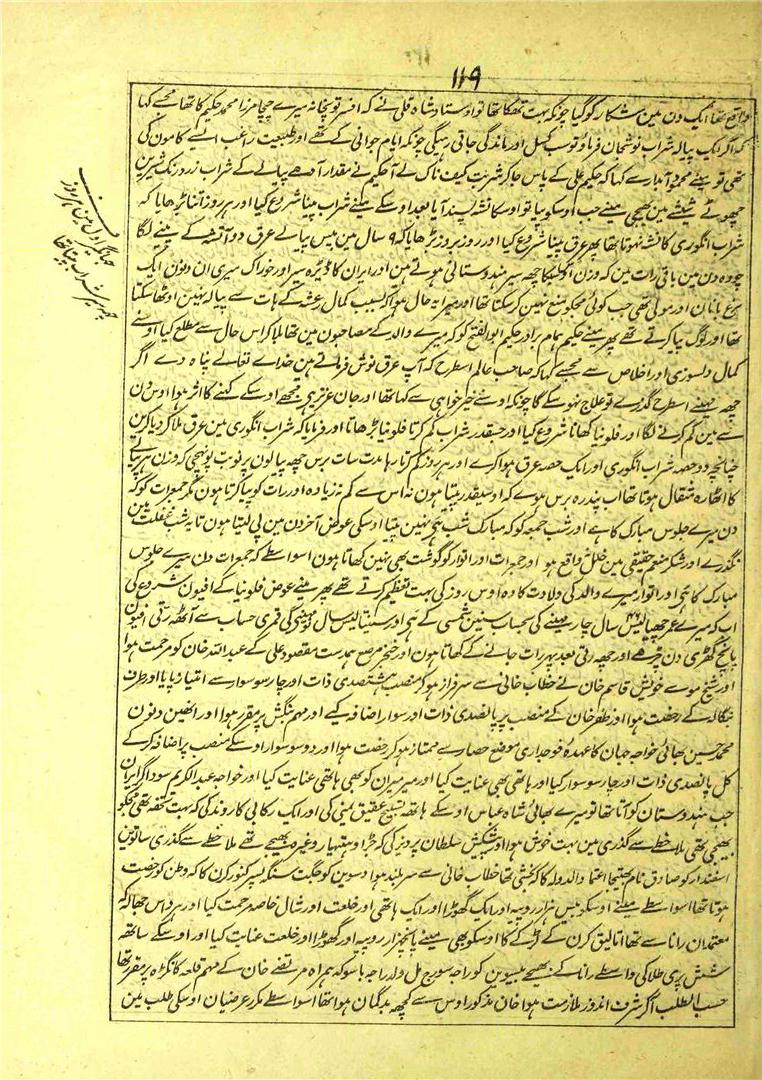 ۱۱۹
واقع تھا ایک دن مین شکار کو گیا چونکہ بہت تھکا تھا تو اوستاد شاہ قلی نے کہ افسر توپخانہ میرے چچا مرزا محمد حکیم کا تھا مجھے کہا
کہ اگر ایک پیالہ شراب نوشجان فرماؤ تو سب کسل اور ماندگی جاتی رہیگی چونکہ ایام جوانی کے تھے اور طبیعت راغب ایسے کامون کی
تھی تو مینے محمود آبدار سے کہا کہ حکیم علی کے پاس جا کر شربت کیف ناک لے آ حکیم نے مقدار آدھے پیالے کے شراب زرد رنگ شیرین
چھوٹے شیشے مین بھیجی مینے جب اوسکو پیا تو اوسکا نشہ پسند آیا بعد اوسکے مینے شراب پینا شروع کیا اور ہر روز اتنا بڑھایا کہ
شراب انگوری کا نشہ نہوتا تھا پھر عرق پینا شروع کیا اور روز بروز بڑھا کہ ۹ سال مین بیس پیالے عرق دو آتشہ کے پینے لگا
چودہ دن مین باقی رات مین کہ وزن اوسکا چھ سیر ہندوستانی ہوتے ہین اور ایران کا ڈیڑہ سیر اور خوراک میری ان دنون ایک
مرغ با نان اور مولی تھی جب کوئی مجکو منع نہین کر سکتا تھا اور میرا یہ حال ہوا کہ بسبب کمال رعشہ کے ہات سے پیالہ نہین اوٹھا سکتا
تھا اور لوگ پیا کرتے تھے پھر مینے حکیم ہمام برادر حکیم ابو الفتح کو کہ میرے والد کے مصاحبون مین تھا بلا کر اس حال سے مطلع کیا اوسنے
کمال دلسوزی اور اخلاص سے مجھسے کہا کہ صاحب عالم اسطرح کہ آپ عرق نوش فرماتے ہین خداے تعالے پناہ دے اگر
چھ مہینے اسطرح گذرے تو علاج نہو سکے گا چونکہ اوسنے خیر خواہی سے کہا تھا اور جان عزیز ہی مجھے اوسکے کہنے کا اثر ہوا اوس دن
سے مین کم کرنے لگا اور فلونیا کھانا شروع کیا اور جسقدر شراب کم کرتا فلونیا بڑھاتا اور فرمایا کہ شراب انگوری مین عرق ملا کر دیا کرین
چنانچہ دو حصہ شراب انگوری اور ایک حصہ عرق ہوا کرے اور ہر روز کم کرتا رہا مدت سات برس چھ پیالون پر نوبت پونہچی کہ وزن ہر پیالے
کا اٹھارہ مثقال ہوتا تھا اب پندرہ برس ہوے کہ اوسیقدر پیتا ہون نہ اس سے کم نہ زیادہ اور رات کو پیا کرتا ہون مگر جمعرات کو کہ
دن میرے جلوس مبارک کا ہے اور شب جمعہ کو کہ مبارک شب ہی نہین پیتا اوسکی عوض آخر دن مین پی لیتا ہون تا یہ شب غفلت مین
نگذرے اور شکر منعم حقیقی مین خلل واقع ہو اور جمعرات اور اتوار کو گوشت بھی نہین کھاتا ہون اسواسطے کہ جمعرات دن میرے جلوس
مبارک کا ہی اور اتوار میرے والد کی ولادت کا وہ اوس روز کی بہت تعظیم کرتے تھے پھر مینے عوض فلونیا کے افیون شروع کی
اب کہ میرے عمر چھیالیس ۴۶ سال چار مہینے کی بحساب سنین شمسی کے ہی اور سینتالیس سال نو مہینے کی قمری حساب سے آٹھ رتی افیون
پانچ گھڑی دن چڑھے اور چھ رتی بعد پہر رات جانے کے کھاتا ہون اور خنجر مرصع بدست مقصود علی کے عبد اللہ خان کو مرحمت ہوا
اور شیخ موسے خویش قاسم خان نے خطاب خانی سے سرفراز ہو کر منصب ہشتصدی ذات اور چار سو سوار سے امتیاز پایا اور طرف
بنگالہ کے رخصت ہوا اور ظفر خان کے منصب پر پانصدی ذات اور سوار اضافہ کیے اور مہم بنگش پر مقرر ہوا اور انھین دنون
محمد حسین بھائی خواجہ جہان کا عہدہ فوجداری موضع حصار سے ممتاز ہو کر رخصت ہوا اور دو سو سوار اوسکے منصب پر اضافہ کر کے
کل پانصدی ذات اور چار سو سوار کیا اور ہاتھی بھی عنایت کیا اور میر میران کو بھی ہاتھی عنایت کیا اور خواجہ عبد الکریم سوداگر ایران
جب ہندوستان کو آتا تھا تو میرے بھائی شاہ عباس اوسکے ہاتھ تسبیح عقیق یمنی کی اور ایک رکابی کار وندیک کی کہ بہت تحفہ تھی مجکو
بھیجی تھی ملاحظے سے گذری مین بہت خوش ہوا اور پیشکش سلطان پرویز کی کہ جڑاؤ ہتھیار وغیرہ بھیجے تھے ملاحظے سے گذری ساتوین
اسفندار کو صادق نام بھتیجا اعتماد الدولہ کا کہ بخشی تھا خطاب خانی سے سربلند ہوا دسوین کو جگت سنگھ پسر کنور کرن کا کہ وطن کو رخصت
ہوتا تھا اسواسطے مینے اوسکو بیس ہزار روپیہ اور ایک گھوڑا اور ایک ہاتھی اور خلعت اور شال خاصہ مرحمت کیا اور ہرداس جھالہ کہ
معتمدان رانا سے تھا اتالیق کرن کے لڑکے کا اوسکو بھی مینے پانچہزار روپیہ اور گھوڑا اور خلعت عنایت کیا اور اوسکے ساتھہ
شش پری طلا کی واسطے رانا کے بھیجے بیسیوین کو راجہ سورج مل ولد راجہ باسو کہ ہمراہ مرتضے خان کے مہم قلعہ کانگڑہ پر مقرر تھا
حسب الطلب آ کر شرف اندوز ملازمت ہوا خان مذکور اوس سے کچھہ بدگمان ہوا تھا اسواسطے مکرر عرضیان اوسکی طلب مین
جہانگیر اول مین ہر روز
چھ سیر شراب پیتا تھا